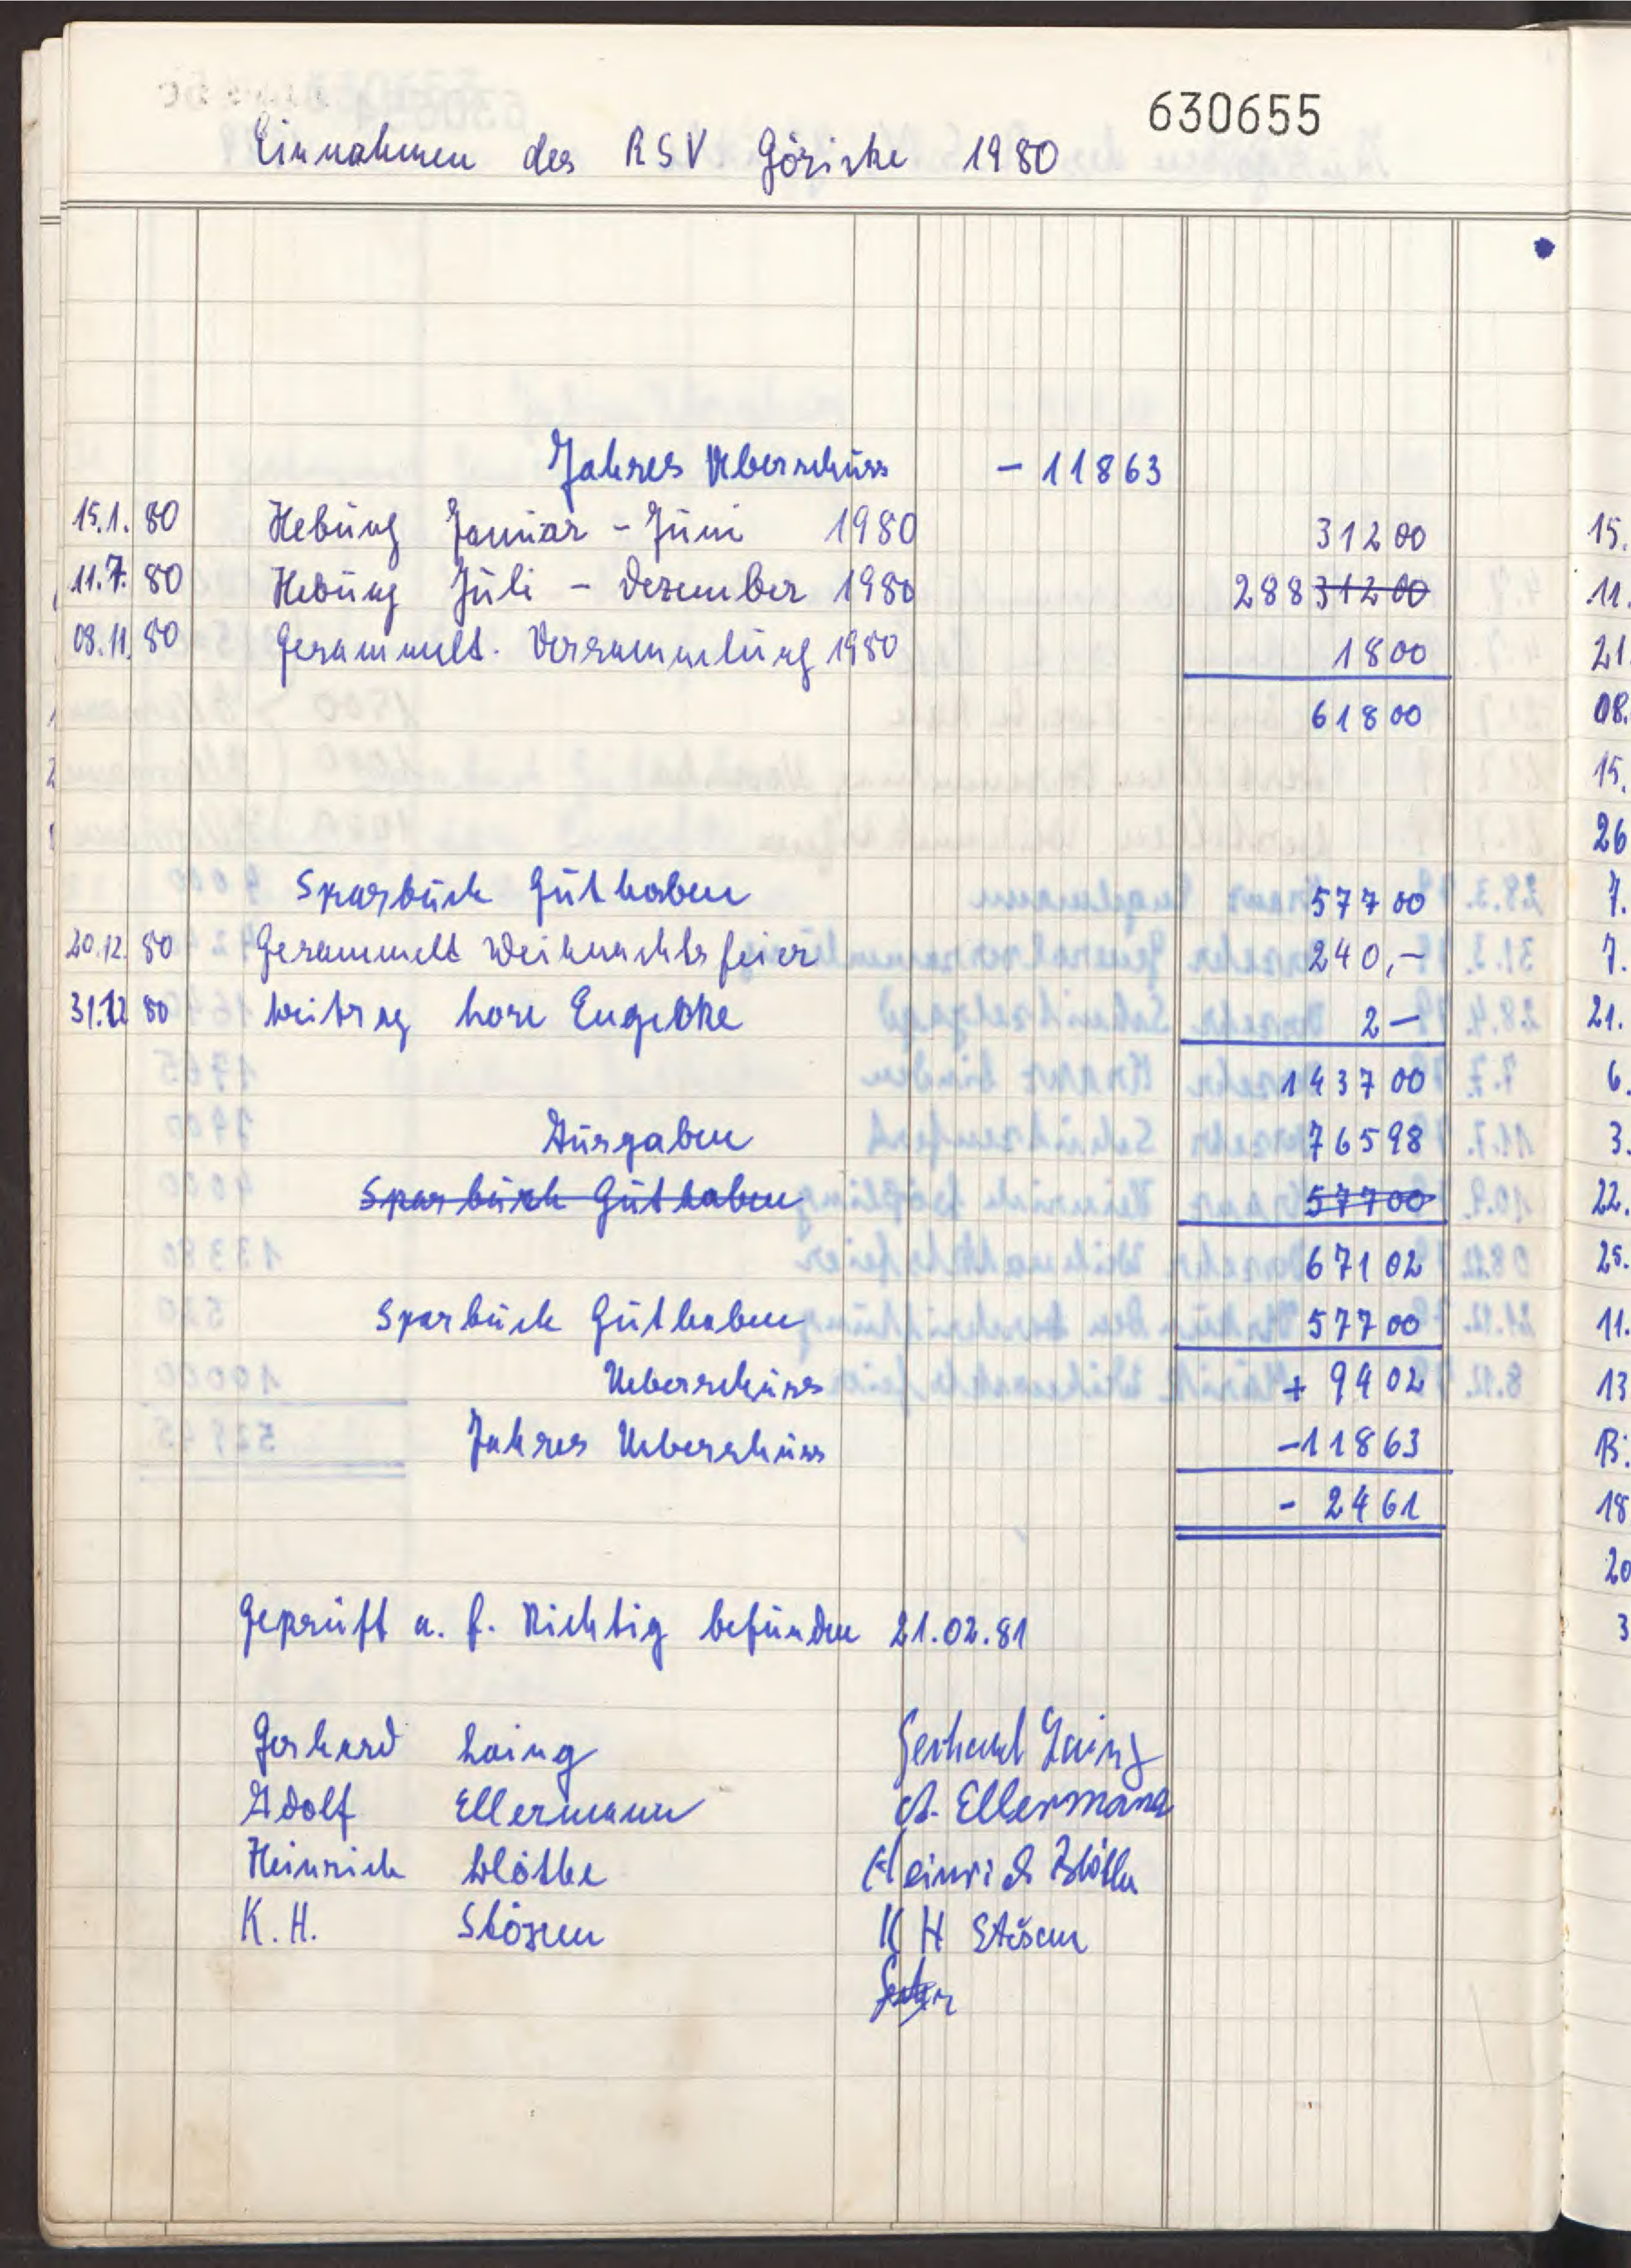 630655
Einnahmen des RSV Göricke 1980
Jahres Überschuss - 11863
15.1. 80 Hebung Januar - Juni 1980 312 00
11.7. 80 Hebung Juli - Dezember 1980 288 312 00
08.11. 80 Gesammelt. Versammlung 1980 18 00
618 00
Sparbuch Guthaben 577 00
20.12. 80 Gesammelt Weihnachtsfeier 240,-
31.12 80 Beitrag Lore 2 -
1437 00
Ausgaben 765 98
Sparbuch Guthaben 577 00
671 02
Sparbuch Guthaben 577 00
Ueberschuss + 94 02
Jahres Ueberschuss - 118 63
- 24 61
Geprüft u. f. Richtig befunden 21.02.81
Gerhard Laing Gerhard Laing
Adolf Ellermann A. Ellermann
Heinrich Blöthe Heinrich Blöthe
K. H. Stösen K H Stösen
15.
11.
21.
08.
15.
26
7.
7.
21.
6.
3.
22.
25.
11.
13
13.
18
20
3